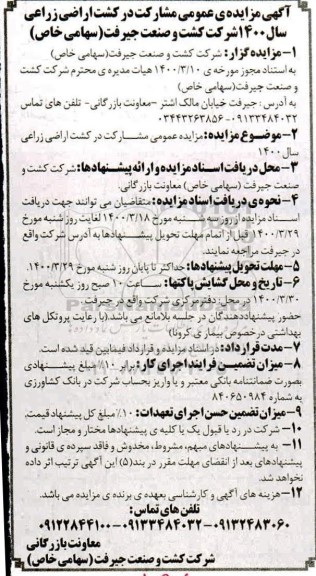 آگهی مزایده‌ی عمومی مشارکت در کشت اراضی زراعی
سال ۱۴۰۰ شرکت کشت و صنعت جیرفت (سهامی خاص)
۱- مزایده گزار: شرکت کشت و صنعت جیرفت (سهامی خاص)
به استناد مجوز مورخه ی ۱۴۰۰/۳/۱۰ هیات مدیره ی محترم شرکت کشت و صنعت جیرفت (سهامی خاص)
به آدرس: جیرفت خیابان مالک اشتر - معاونت بازرگانی- تلفن های تماس
۰۹۱۳۳۴۸۴۰۳۲- ۰۳۴۴۳۲۶۳۸۵۶
۲- موضوع مزایده: مزایده عمومی مشارکت در کشت اراضی زراعی
سال ۱۴۰۰
۳- محل دریافت اسناد مزایده و ارائه پیشنهادها: شرکت کشت و
صنعت جیرفت (سهامی خاص) معاونت بازرگانی.
۴- نحوه ی دریافت اسناد مزایده: متقاضیان می توانند جهت دریافت
اسناد مزایده از روز سه شنبه مورخ ۱۴۰۰/۳/۱۸ لغایت روز شنبه مورخ
۱۴۰۰/۳/۲۹ قبل از اتمام مهلت تحویل پیشنهادها به آدرس شرکت واقع
در جیرفت مراجعه نمایند.
۵- مهلت تحویل پیشنهادها: حداکثر تا پایان روز شنبه مورخ ۱۴۰۰/۳/۲۹.
۶- تاریخ و محل گشایش پاکتها: ساعت ۱۰ صبح روز یکشنبه مورخ
۱۴۰۰/۳/۳۰ در محل: دفتر مرکزی شرکت واقع در جیرفت.
حضور پیشنهاددهندگان در جلسه بلامانع می باشد. (با رعایت پروتکل های
بهداشتی در خصوص بیماری کرونا)
۷- مدت قرارداد: در اسناد مزایده و قرارداد فیمابین قید شده است.
۸- میزان تضمین فرایند اجرای کار: برابر ۱۰٪ مبلغ پیشنهادی
بصورت ضمانتنامه بانکی معتبر و یا واریز بحساب شرکت در بانک کشاورزی
به شماره ۸۴۰۶۵۰۹۸۴
۹- میزان تضمین حسن اجرای تعهدات: ۱۰٪ مبلغ کل پیشنهاد قیمت.
۱۰- شرکت در رد یا قبول یک یا کلیه ی پیشنهادها مختار و مجاز است.
۱۱- به پیشنهادهای مبهم، مشروط، مخدوش و فاقد سپرده ی قانونی و
پیشنهادهای بعد از انقضای مهلت مقرر در بند (۵) این آگهی ترتیب اثر داده
نخواهد شد.
۱۲- هزینه های آگهی و کارشناسی بعهده ی برنده ی مزایده می باشد.
تلفن های تماس:
۰۹۱۳۲۴۸۳۰۶۰-۰۹۱۳۳۴۸۴۰۳۲-۰۹۱۲۲۸۴۴۱۰۰
معاونت بازرگانی
شرکت کشت و صنعت جیرفت (سهامی خاص)